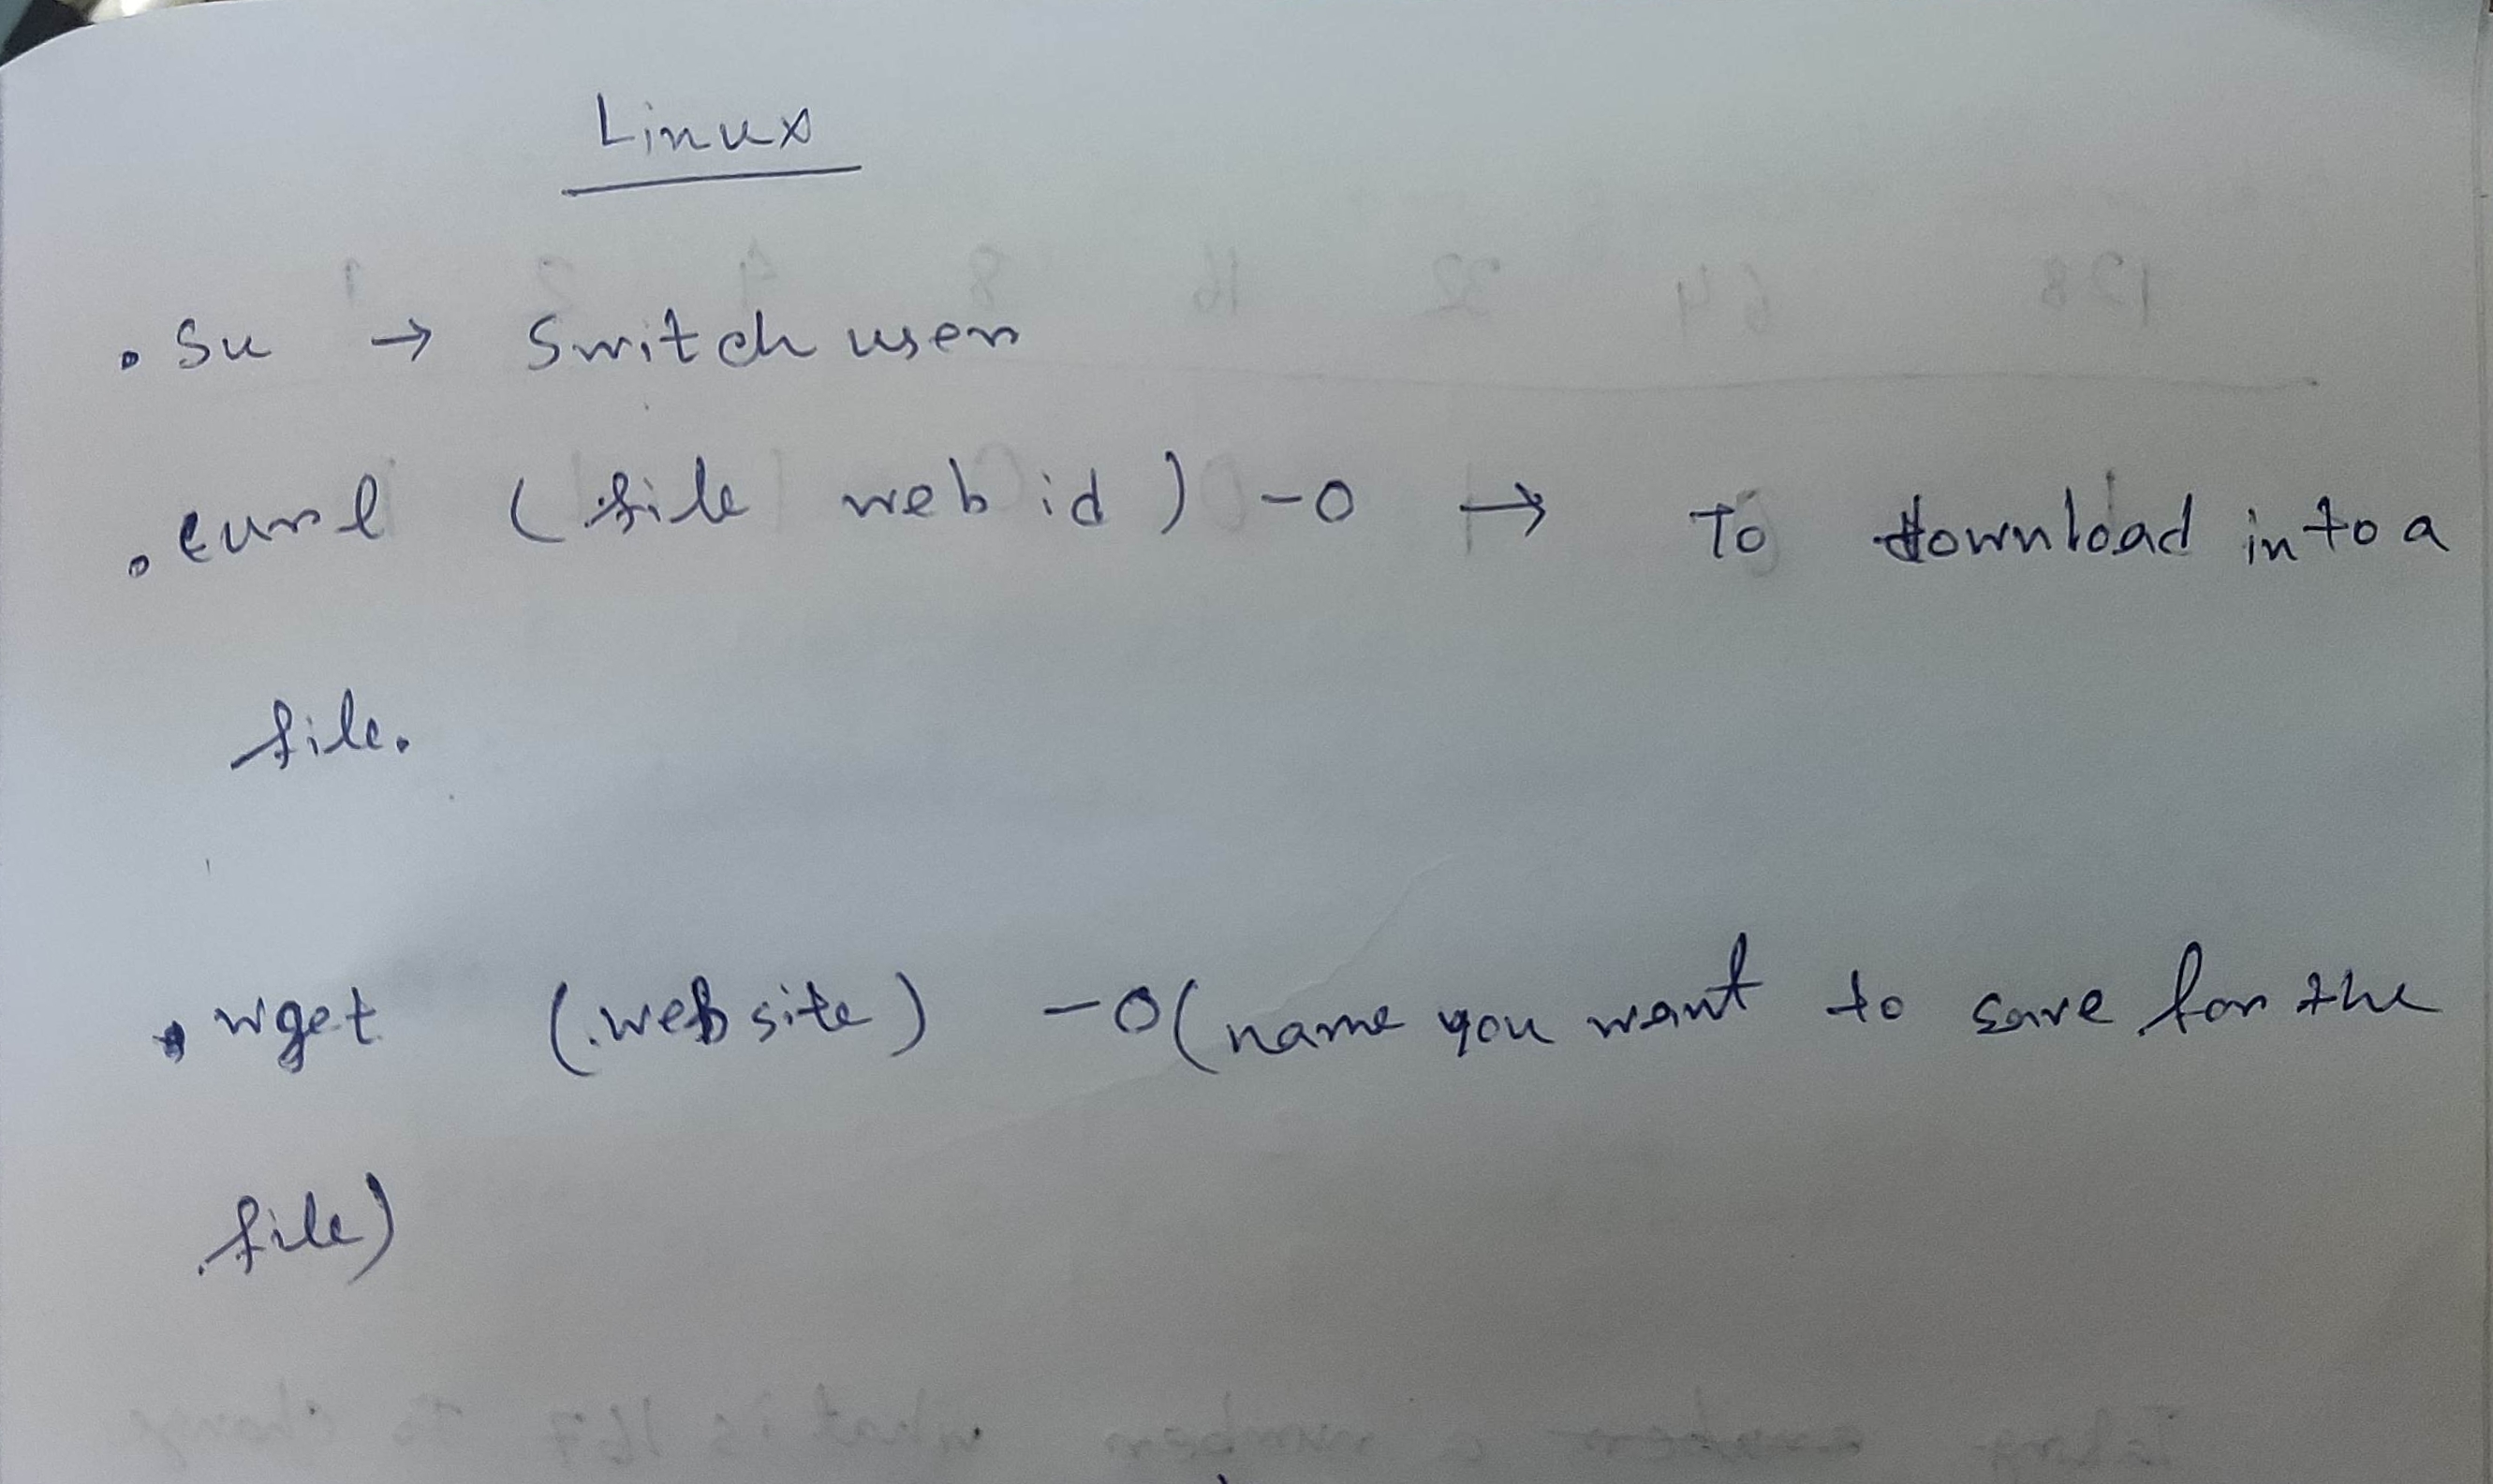 Linux
• su → Switch user
• curl (file web id) -O → To download into a
file.
• wget (website) -O (name you want to save for the
file)